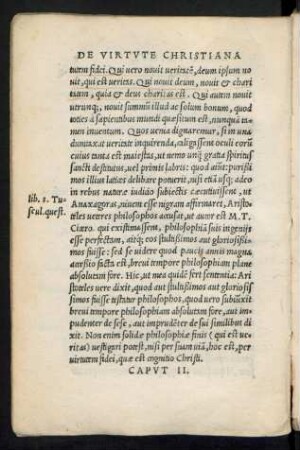 DE VIRTVTE CHRISTIANA
tutem fidei. Qui vero nouit veritatē, deum ipsum no
uit, qui est veritas. Qui nouit deum, nouit & chari
tatem, quia & deus charitas est. Qui autem nouit
utrunq;, nouit summū illud ac solum bonum, quod
toties à sapientibus mundi quæsitum est, nunquā ta
men inuentum. Quos uenia dignaremur, si in una
duntaxat veritate inquirenda, caligassent oculi eorū
cuius tanta est maiestas, ut nemo unq̃ gratia spiritus
sancti destitutus, uel primis labris: quod aiūt: puriss
mos illius latices delibare potuerit, nisi etiā usq; adeo
in rebus naturæ iudicio subiectis cæcutiuissent, ut
Anaxagoras, niuem esse nigram affirmaret, Aristote
les ueteres philosophos accusat, ut autor est M. T.
lib. 3. Tu-
scul. quest.
Cicero. qui existimassent, philosophiā suis ingenijs
esse perfectam, aitq; eos stultissimos aut gloriosissi
mos fuisse: sed se uidere quod paucis annis magna
accessio facta est, breui tempore philosophiam plane
absolutam fore. Hic, ut mea quidē fert sententia: Ari
stoteles uere dixit, quod aut stultissimos aut gloriosis
simos fuisse testatur philosophos, quod uero subiūxit
breui tempore philosophiam absolutam fore, aut im
pudenter de sese, aut imprudēter de sui similibus di
xit. Non enim solidæ philosophiæ finis (qui est ue
ritas) uestigari potest, nisi per suam uiā, hoc est, per
virtutem fidei, quæ est cognitio Christi.
CAPVT II.